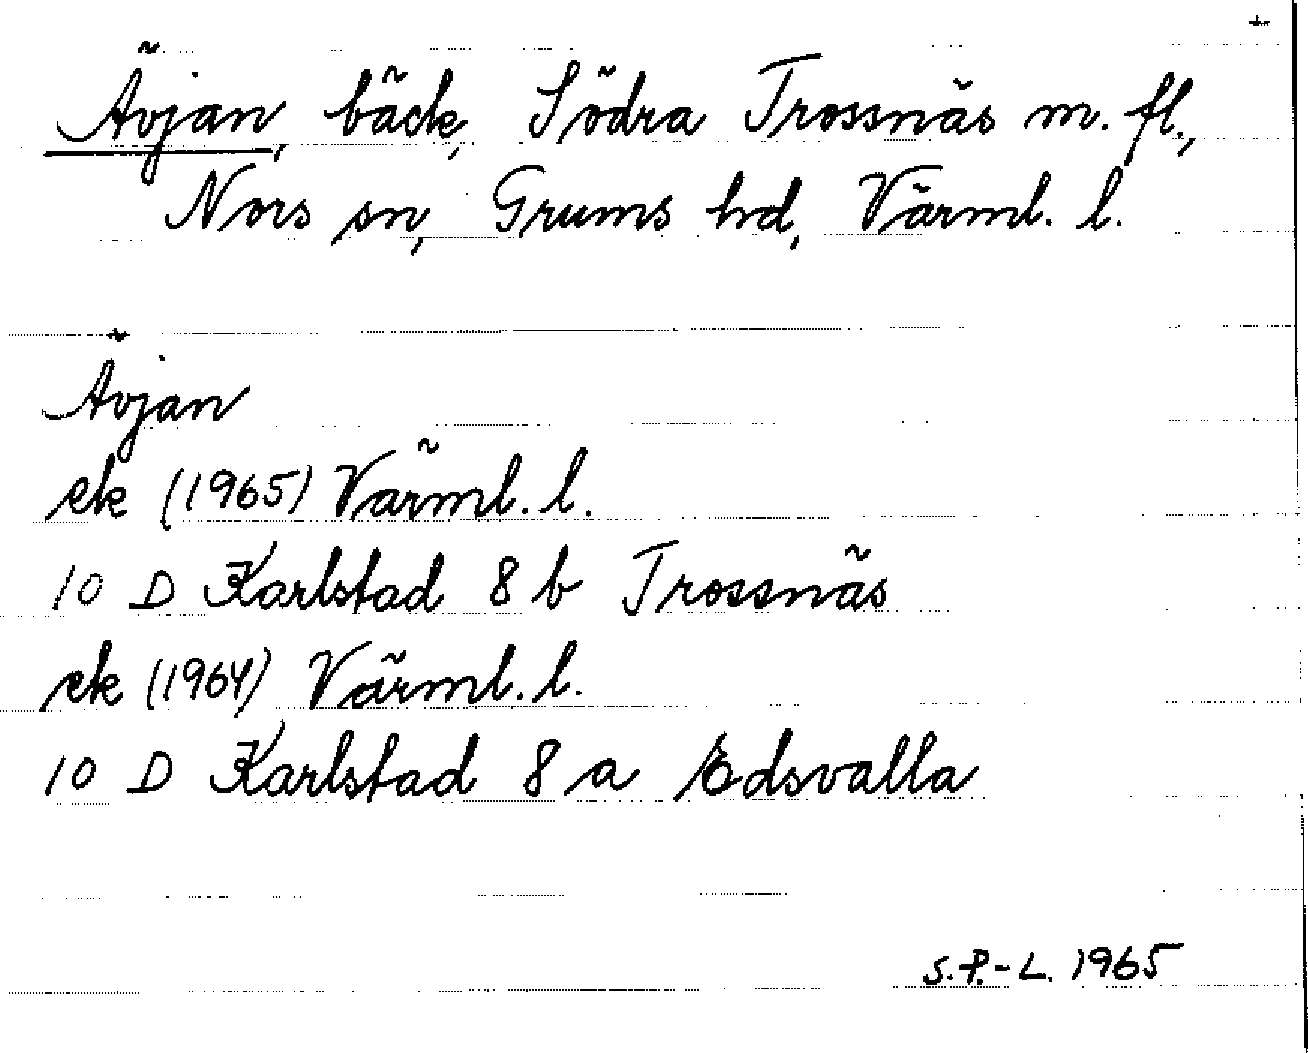 Ävjan, bäck, Södra Trossnäs m. fl.,
Nors sn, Grums hd, Värml. l.
Ävjan
ek (1965) Värml. l.
10 D Karlstad 8 b Trossnäs
ek (1964) Värml. l.
10 D Karlstad 8 a Edsvalla
S.P.-L. 1965